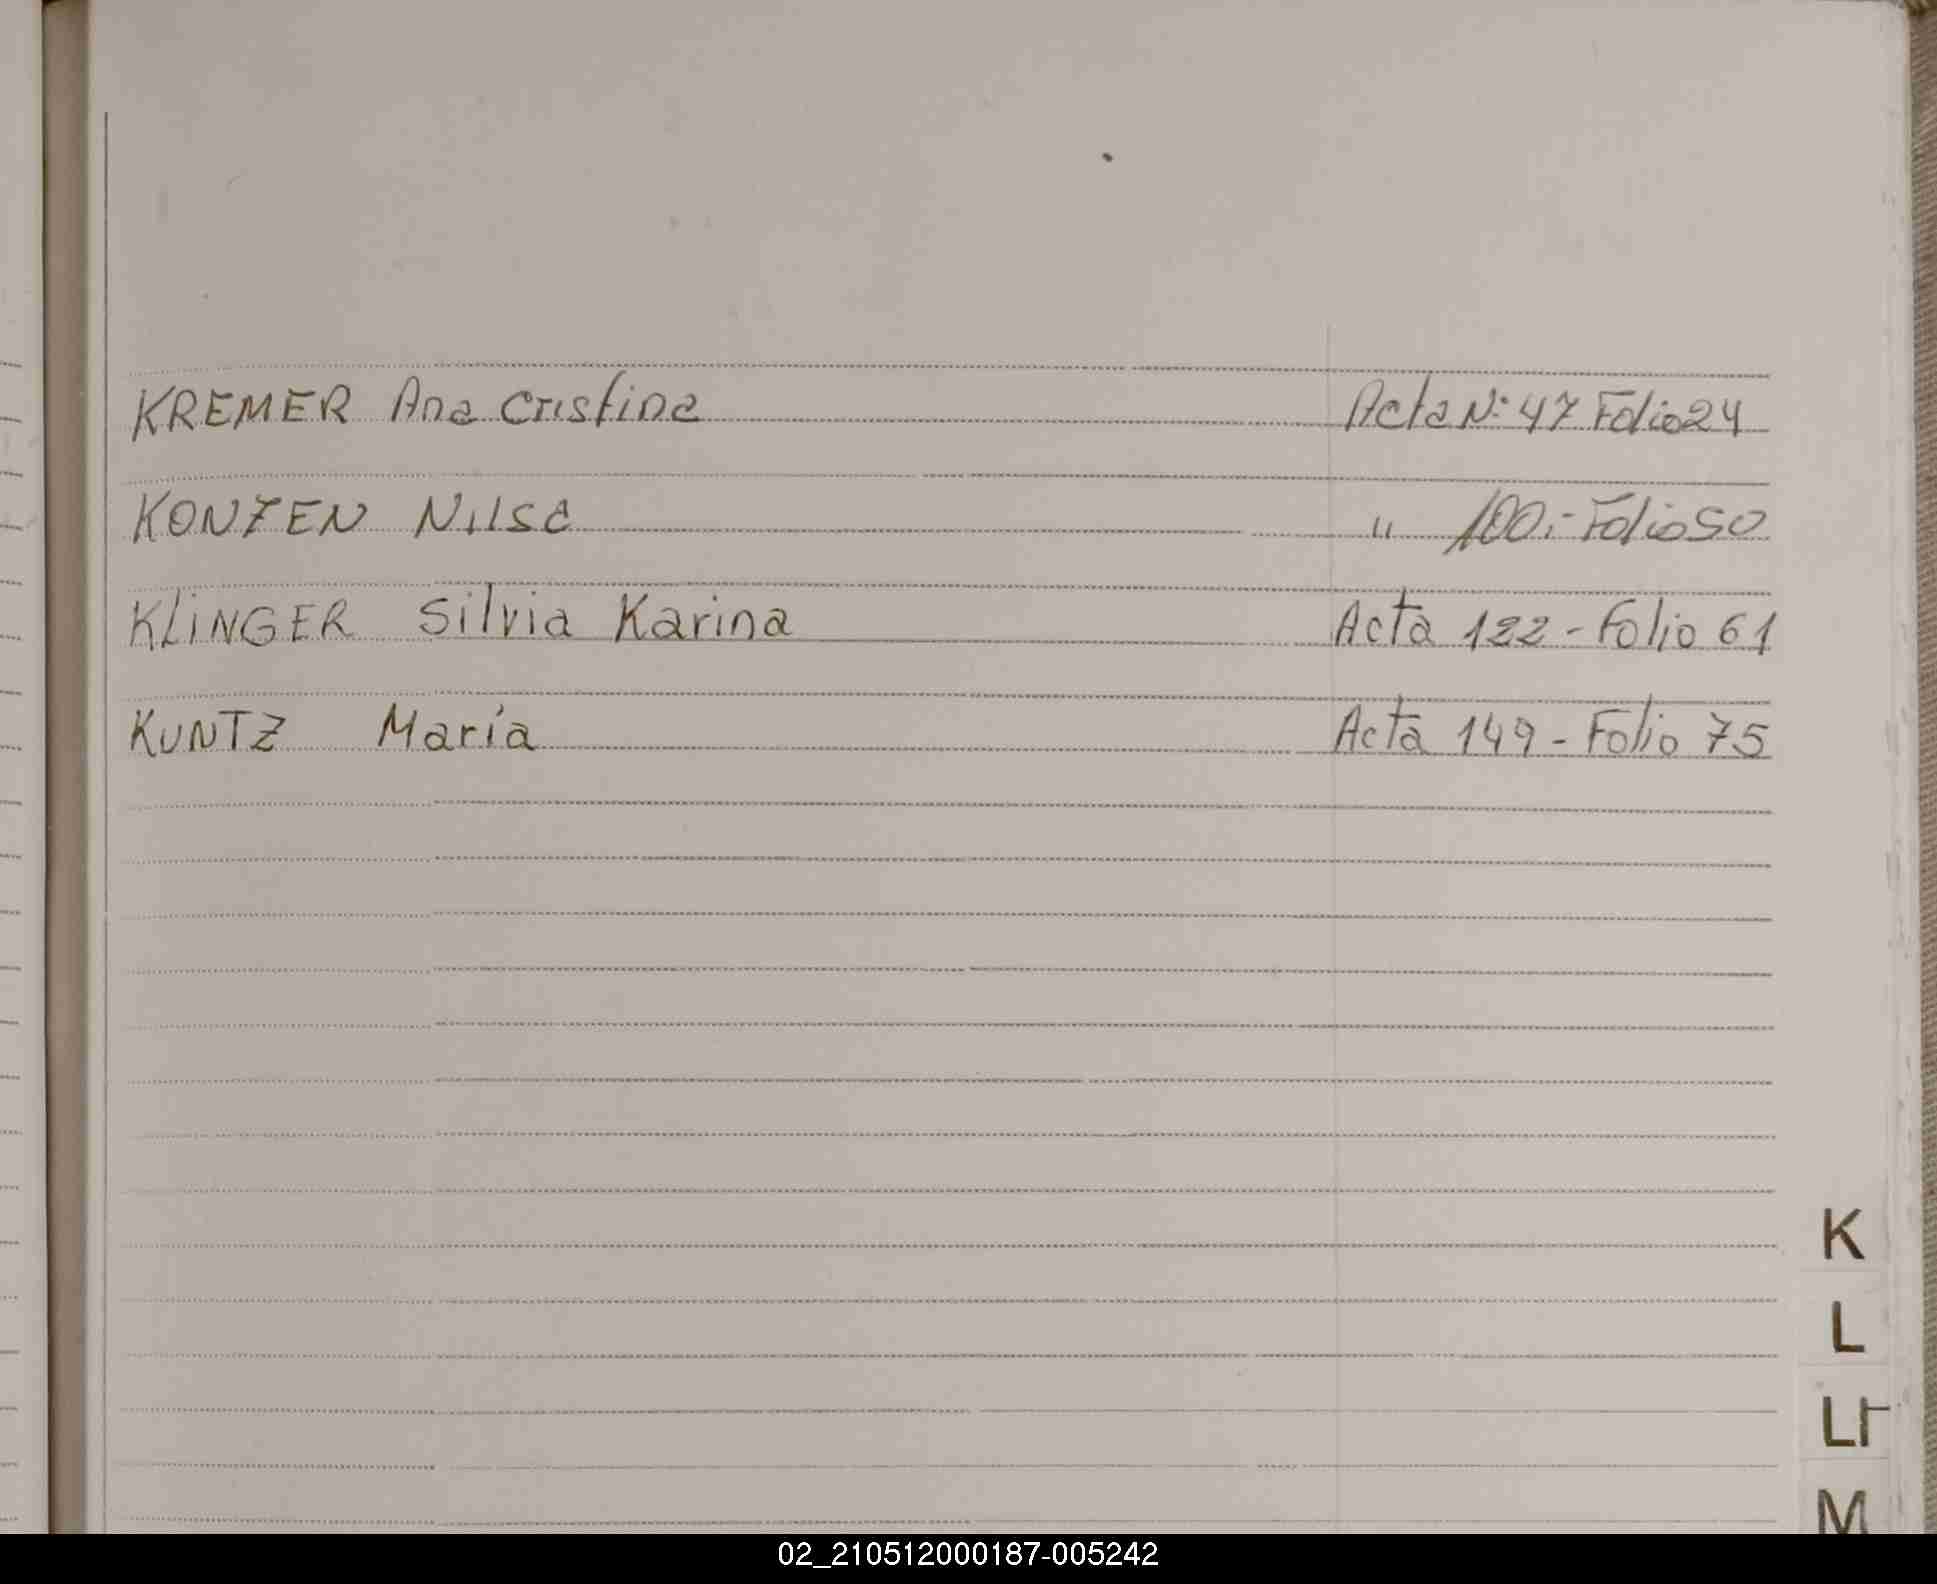 KREMER Ana Cristina Acta Nº 47 Folio 24
KONZEN Nilse " 100.- Folio 50
KLINGER Silvia Karina Acta 122 - Folio 61
KUNTZ María Acta 149 - Folio 75
K
L
Ll
M
02_210512000187-005242